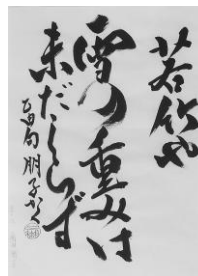 若竹や
雪の重みは
未だしらず
朋子かく